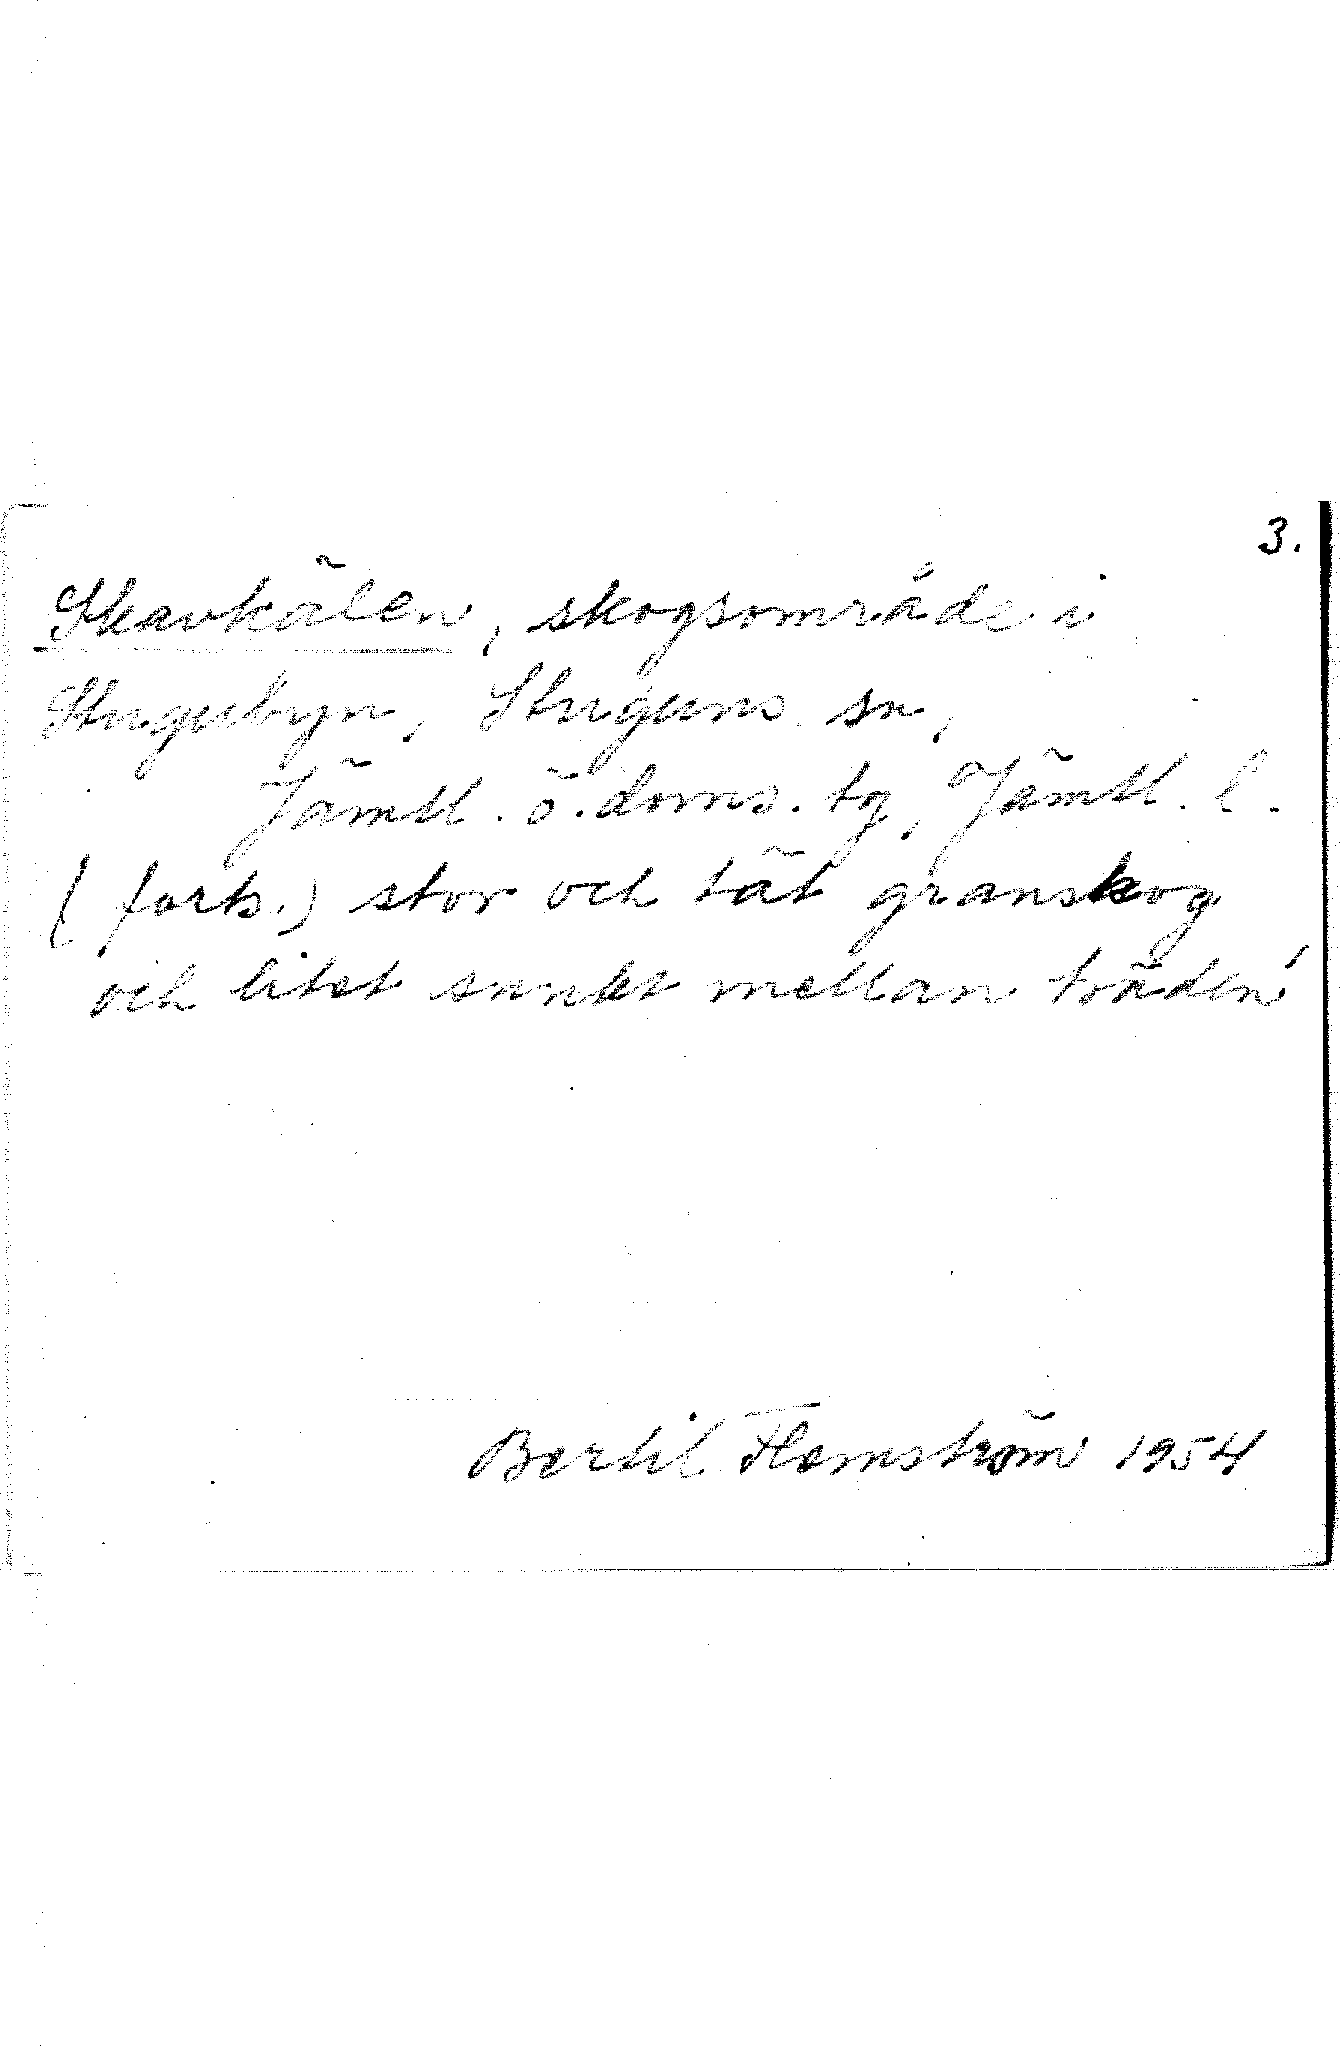 3.
Skavkälen, skogsområde i
Stugubyn, Stuguns sn,
Jämtl. ö. doms. tg, Jämtl. l.
(forts.) stor och tät granskog
och litet sankt mellan träden'
Bertil Flemström 1954